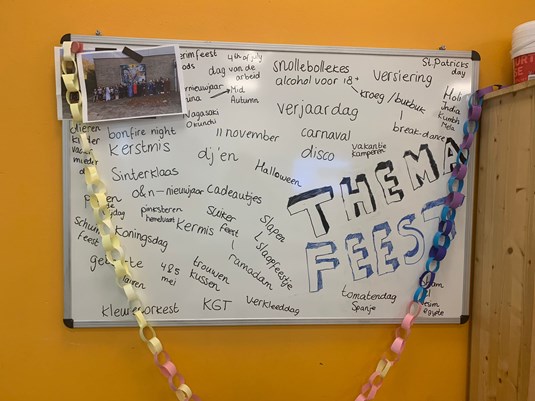 4th of july
snollebollekes
St. Patricks
day
dag van de
arbeid
alcohol voor 18+
versiering
kroeg/
Mid
Autumn
verjaardag
Holi
India
Kumbh
Mela
Nagasaki
Okunchi
break-dance
dieren
bonfire night
11 november
carnaval
vakantie
kamperen
Kerstmis
dj'en
disco
Halloween
THEMA
Sinterklaas
o&n-nieuwjaar
cadeautjes
pinksteren
hemelvaart
suiker
feest
slapen
slaapfeestje
Koningsdag
Kermis
FEEST
ramadan
4&5
mei
trouwen
kussen
tomatendag
Spanje
KGT
verkleeddag